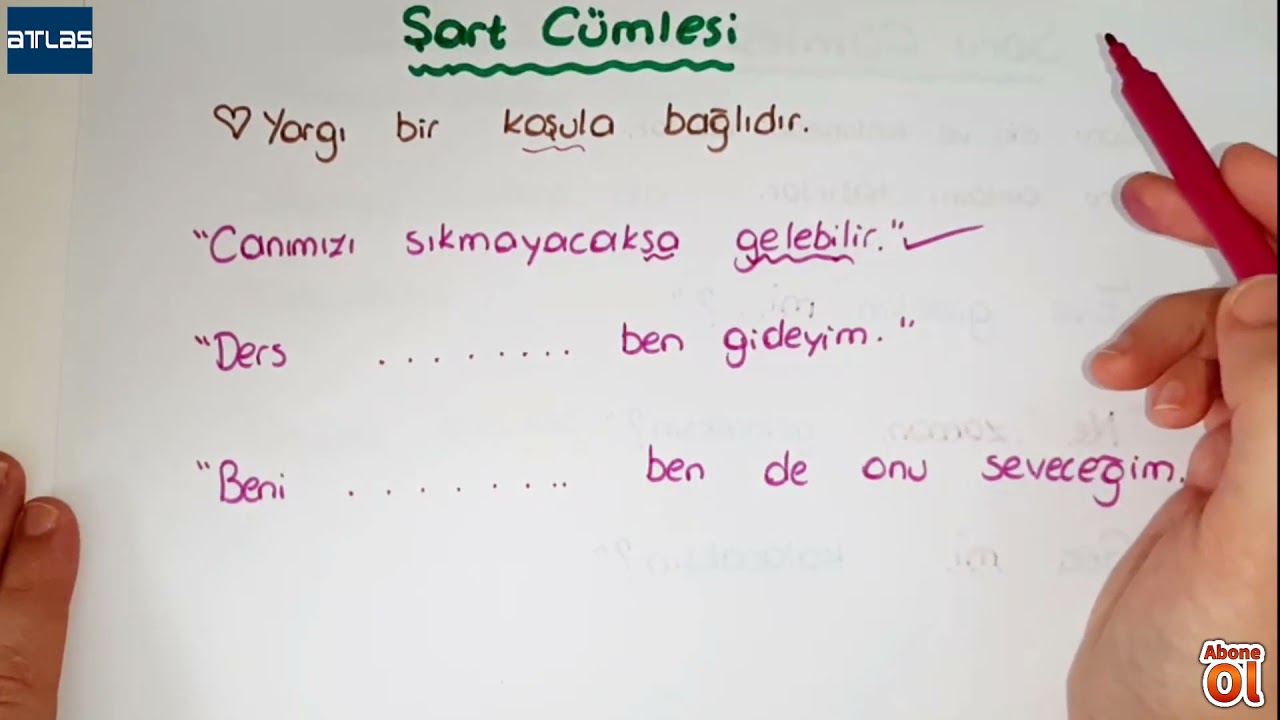 ATLAS
Şart Cümlesi
♡ Yargı bir koşula bağlıdır.
"Canımızı sıkmayacaksa gelebilir."
"Ders ........ ben gideyim."
"Beni ........ ben de onu seveceğim.
Abone
Ol